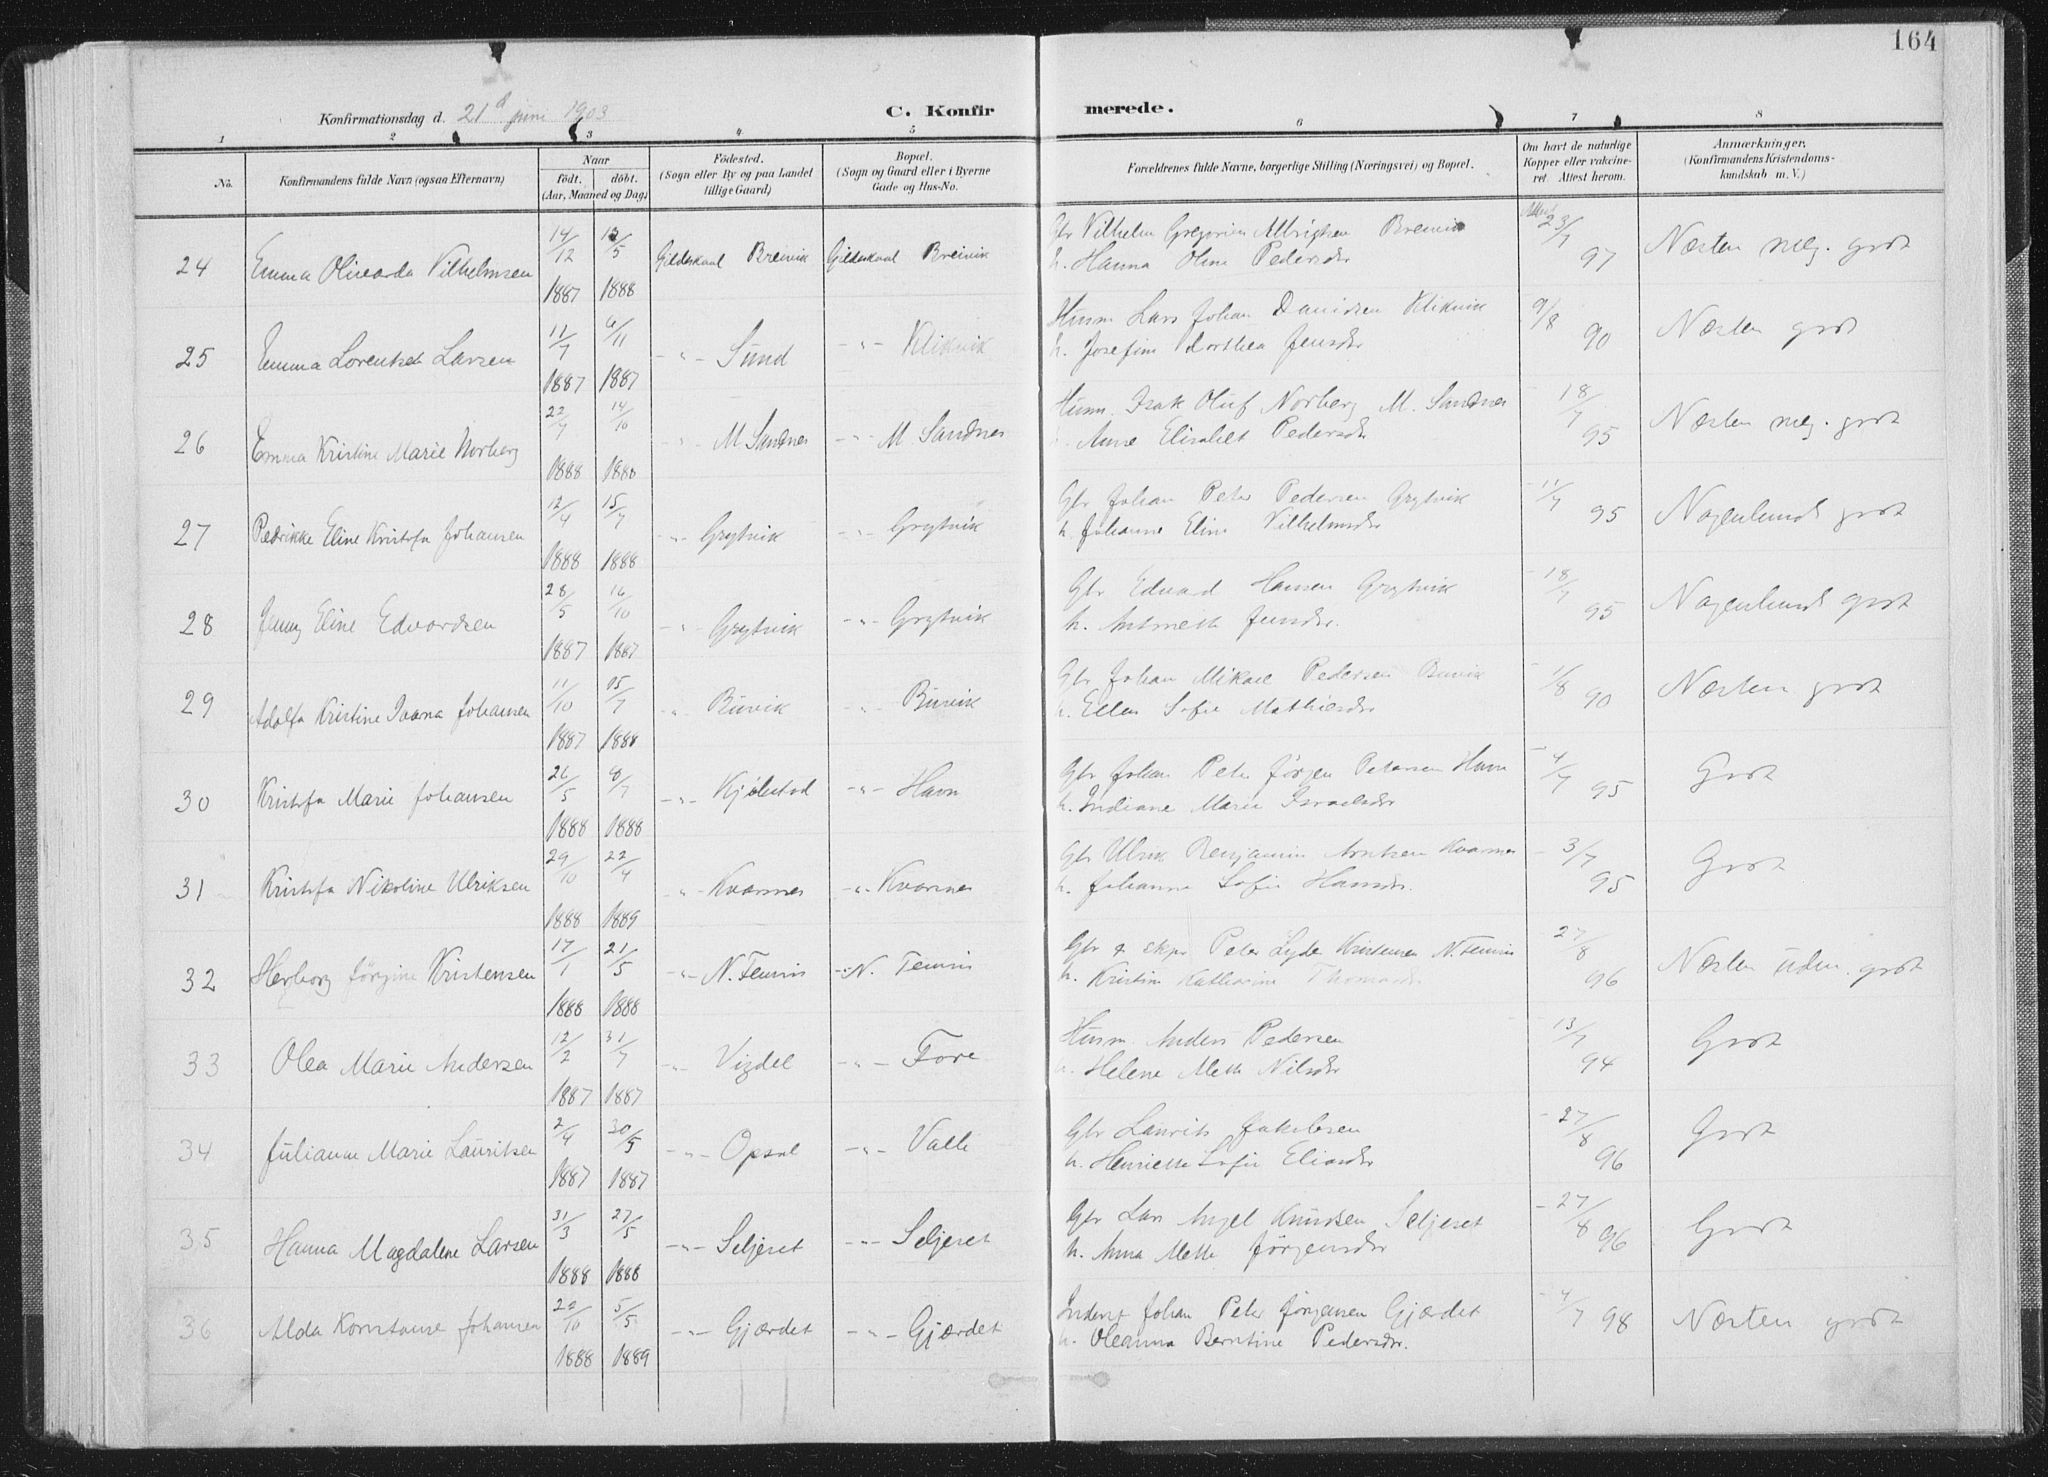 164
Konfirmationsdag d. 21d juni 1903
C. Konfirmerede.
1 2 3 4 5 6 7 8
No.
Konfirmandens fulde Navn (ogsaa Efternavn)
Naar
født. døbt.
(Aar, Maaned og Dag)
Fødested.
(Sogn eller By og paa Landet
tillige Gaard)
Bopæl.
(Sogn og Gaard eller i Byerne
Gade og Hus-No.
Forældrenes fulde Navne, borgerlige Stilling (Næringsvei) og Bopæl.
Om havt de naturlige
Kopper eller vakcine-
ret. Attest herom.
Anmærkninger.
(Konfirmandens Kristendoms-
kundskab m. V.)
24 Emma Olivarda Vilhelmsen 14/12 1887 13/5 1888 Gildeskaal Breivik Gildeskaal Breivik
Gbr Vilhelm Gregorius Albrigtsen Breivik
h. Hanna Oline Pedersdr
Attest 23/7 97 Næsten meg. godt
25 Emma Lorentse Larsen 11/7 1887 6/11 1887 -"- Sund -"- Klikvik
Husm Lars Johan Danielsen Klikvik
h. Josefine Dorthea Jensdr
9/8 90 Næsten godt
26 Emma Kristine Marie Norberg 22/7 1888 14/10 1888 -"- M Sandnes -"- M. Sandnes
Husm. Isak Oluf Norberg M. Sandnes
h. Anne Elisabet Pedersdr
18/7 95 Næsten meg. godt
27 Pedrikke Eline Kristofa Johansen 12/4 1888 15/7 1888 -"- Grytvik -"- Grytvik
Gbr Johan Peter Pedersen Grytvik
h. Johanne Eline Vilhelmsdr
- 11/7 95 Nogenlunde godt
28 Jenny Eline Edvardsen 28/5 1887 16/10 1887 -"- Grytvik -"- Grytvik
Gbr Edvard Hansen Grytvik
h. Antonette Jensdr.
- 18/7 95 Nogenlunde godt
29 Adolfa Kristine Ivarna Johansen 11/10 1887 15/7 1888 -"- Buvik -"- Buvik
Gbr Johan Mikael Pedersen Buvik
h. Ellen Sofie Mathiesdr
- 1/8 90 Næsten godt
30 Kristofa Marie Johansen 26/5 1888 8/7 1888 -"- Kjølstad -"- Havn
Gbr Johan Peter Jørgen Petersen Havn
h. Indiane Marie Israelsdr
- 4/7 95 Godt
31 Kristofa Nikoline Ulriksen 29/10 1888 22/4 1889 -"- Kvarnes -"- Kvarnes
Gbr Ulrik Benjamin Arntsen Kvarnes
h. Johanna Sofie Hansdr.
- 3/7 95 Godt
32 Herborg Jørgine Kristensen 17/1 1888 21/5 1888 -"- N. Tennis -"- N. Tennis
Gbr & skpr Peter Lyder Kristensen N. Tennis
h. Kristine Katharine Thomasdr
- 27/8 96 Næsten uden. godt
33 Olea Marie Andersen 12/2 1887 31/7 1887 -"- Vigdel -"- Fore
Husm. Anders Pedersen
h. Helene Mette Nilsdr
- 13/7 94 Godt
34 Julianne Marie Lauritsen 2/4 1887 30/5 1887 -"- Opsal -"- Valle
Gbr Laurits Jakobsen
h. Henriette Sofie Eliasdr
- 27/8 96 Godt
35 Hanna Magdalene Larsen 31/3 1888 27/5 1888 -"- Seljeset -"- Seljeset
Gbr Lars Angel Knudsen Seljeset
h. Anna Mette Jørgensdr
- 27/8 96 Godt
36 Alda Konstanse Johansen 22/10 1888 5/5 1889 -"- Gjærdet -"- Gjærdet
Inderst Johan Peter Jørgensen Gjærdet
h. Oleanna Berntine Pedersdr.
- 4/7 98 Næsten godt